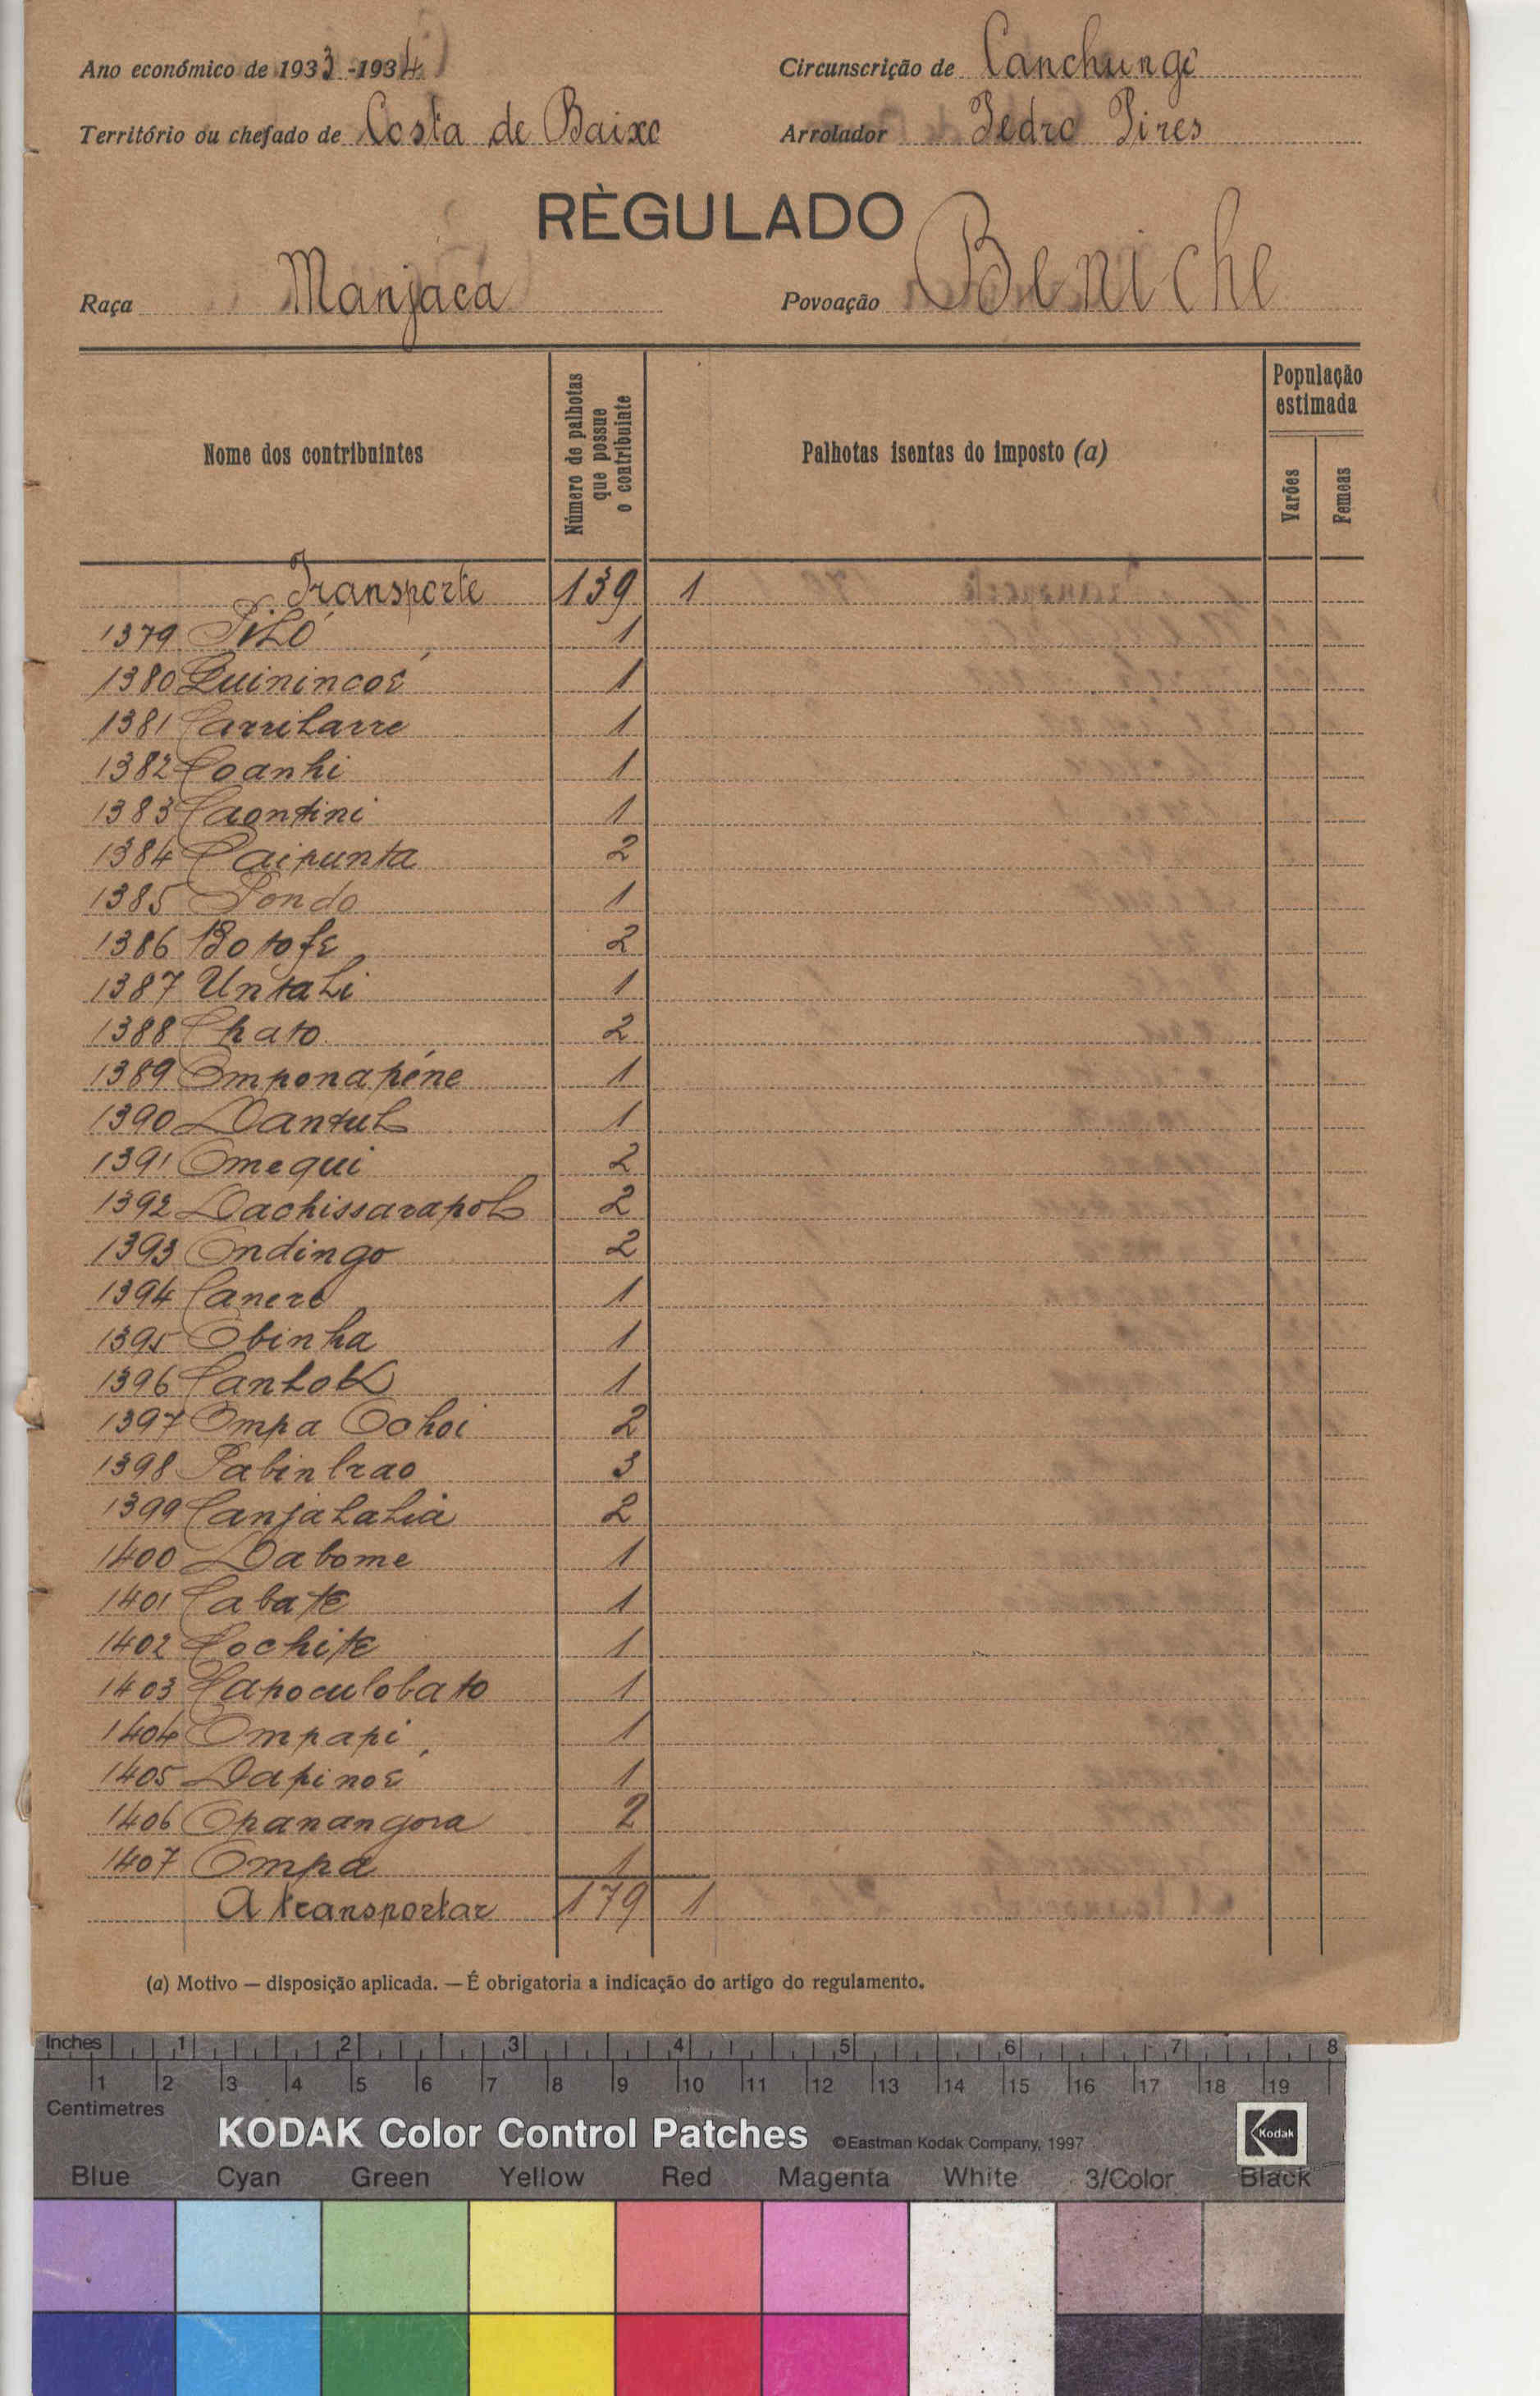 Ano económico de 1933-1934
Circunscrição de Canchungo
Território ou chefado de Costa de Baixo
Arrolador Pedro Pires
RÈGULADO
Raça Manjaca
Povoação Beniche
Nome dos contribuintes
Número de palhotas que possue o contribuinte
Palhotas isentas do imposto (a)
População estimada
Varões
Femeas
Transporte 139 1
1379 Piló 1
1380 Quinincoé 1
1381 Carrilarre 1
1382 Coanhi 1
1383 Caontini 1
1384 Caipunta 2
1385 Pondo 1
1386 Botofe 2
1387 Untali 1
1388 Chato 2
1389 Omponapéne 1
1390 Dantul 1
1391 Omequi 2
1392 Dachissarapol 2
1393 Ondingo 2
1394 Canero 1
1395 Obinha 1
1396 Canlok 1
1397 Ompa Ochoi 2
1398 Pabinlrao 3
1399 Canjalalia 2
1400 Dabome 1
1401 Cabate 1
1402 Cochite 1
1403 Capoculobato 1
1404 Ompapi 1
1405 Dapinoé 1
1406 Opanangora 2
1407 Ompa 1
A transportar 179 1
(a) Motivo — disposição aplicada. — É obrigatoria a indicação do artigo do regulamento.
Inches 1 2 3 4 5 6 7 8
1 2 3 4 5 6 7 8 9 10 11 12 13 14 15 16 17 18 19
Centimetres
KODAK Color Control Patches ©Eastman Kodak Company, 1997 Kodak
Blue Cyan Green Yellow Red Magenta White 3/Color Black